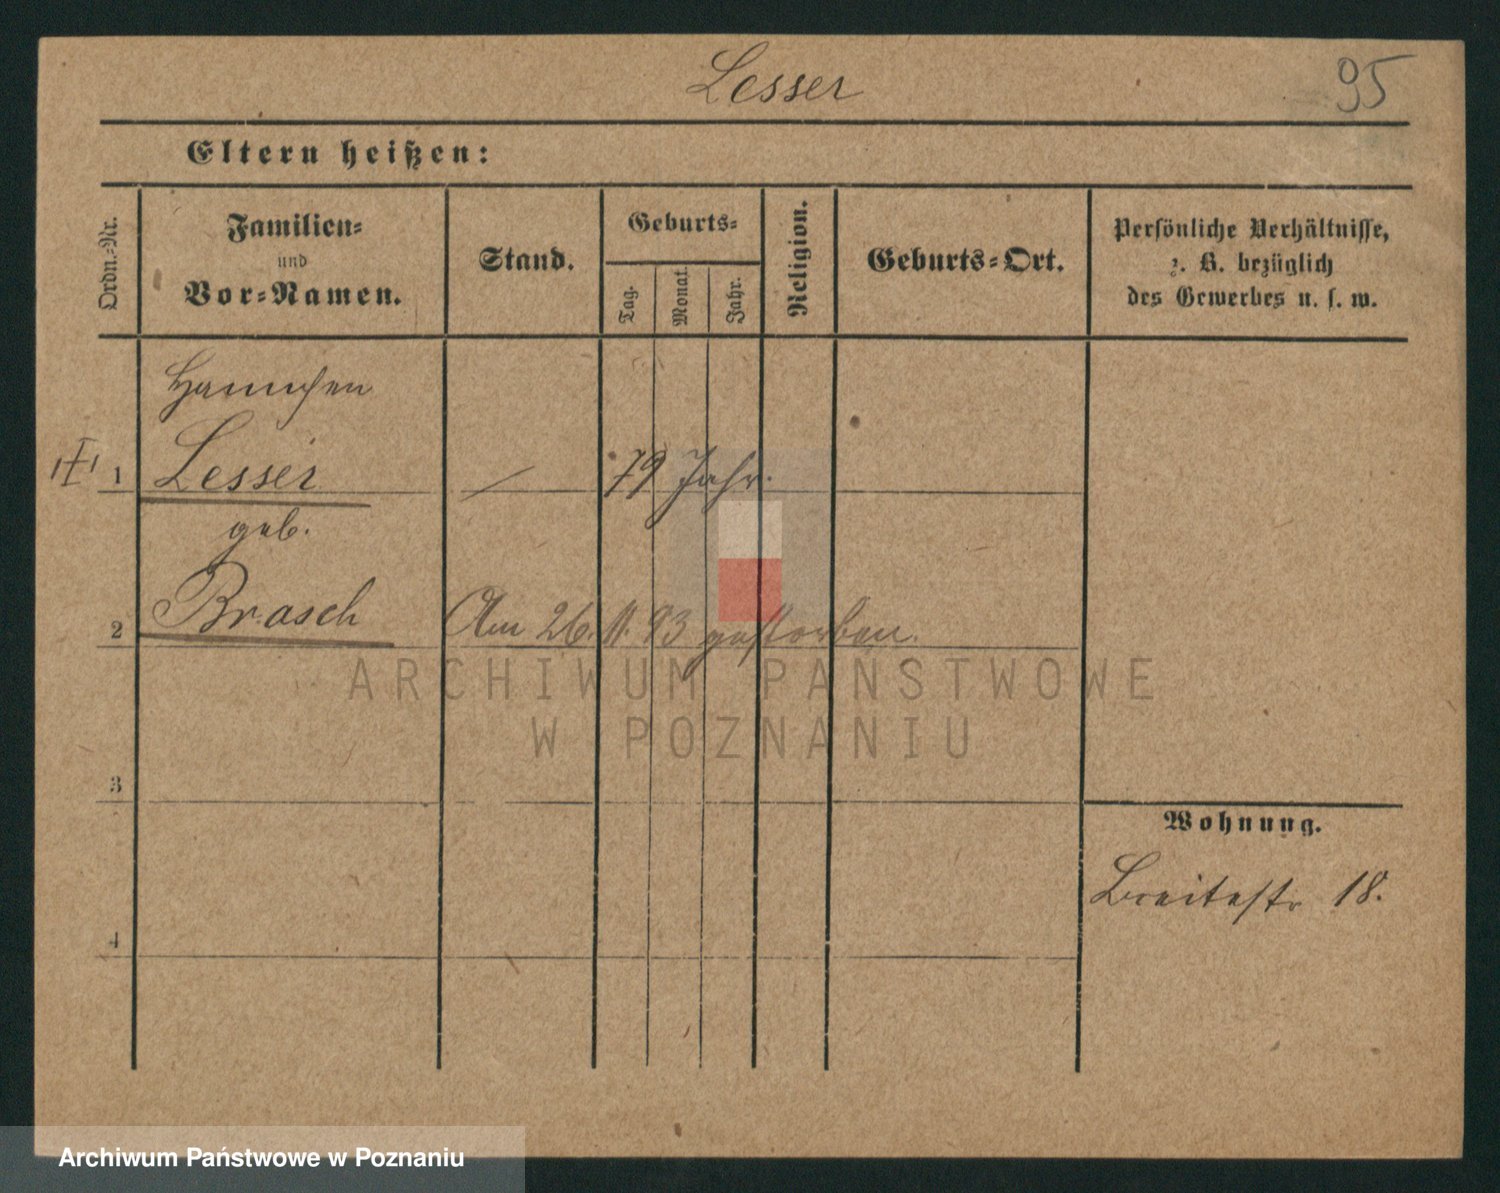 Lesser
95
Eltern heißen:
Ordn.-Nr.
Familien-
und
Vor-Namen.
Stand.
Geburts-
Tag.
Monat.
Jahr.
Religion.
Geburts-Ort.
Persönliche Verhältnisse,
z. B. bezüglich
des Gewerbes u. s. w.
Hannchen
1 Lesser 79 Jahr.
geb.
2 Brasch Am 26. 11. 93 gestorben.
ARCHIWUM PAŃSTWOWE
W POZNANIU
3
Wohnung.
Breitestr 18.
4
Archiwum Państwowe w Poznaniu